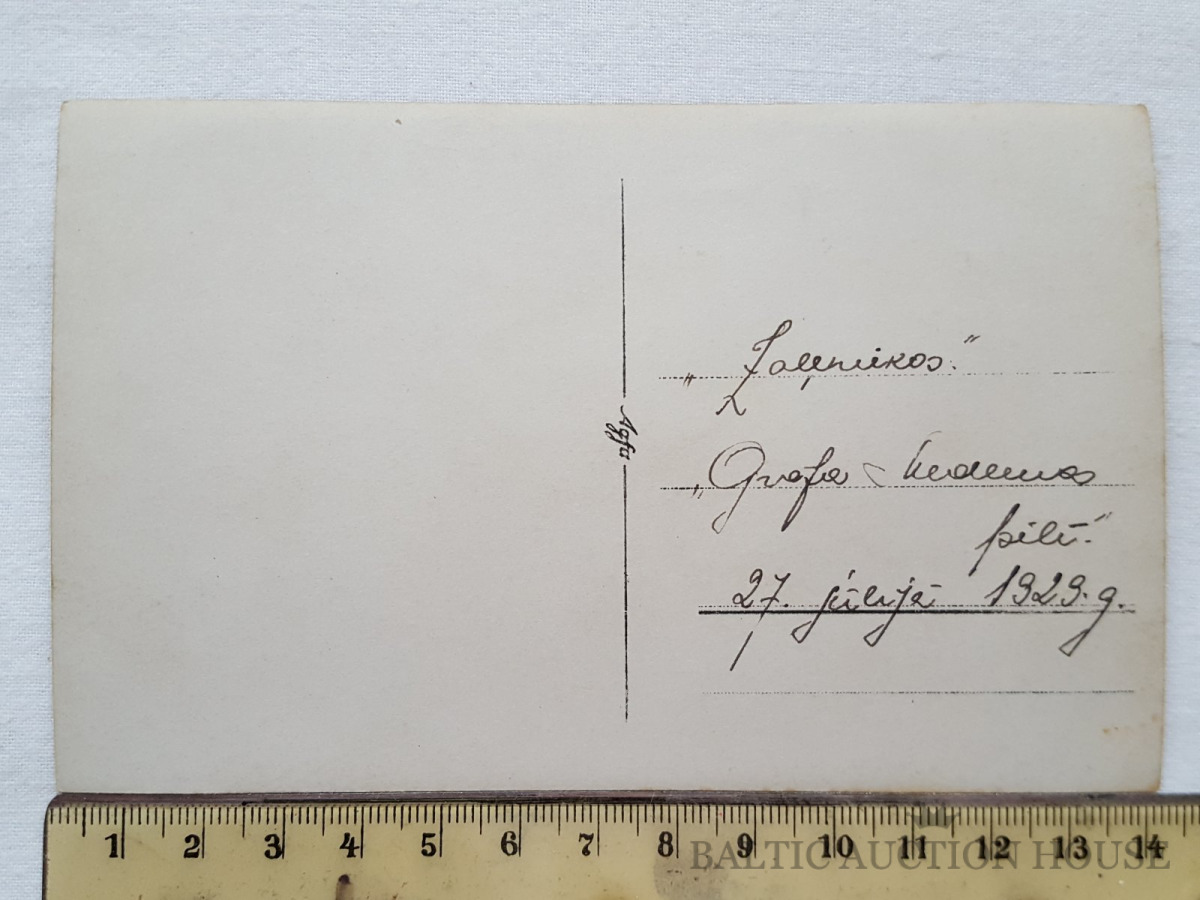 „Zaļenikos.“
„Grafa Medemas
pilī.“
27. jūlijā 1929. g.
Agfa
1 2 3 4 5 6 7 8 9 10 11 12 13 14
BALTIC AUCTION HOUSE